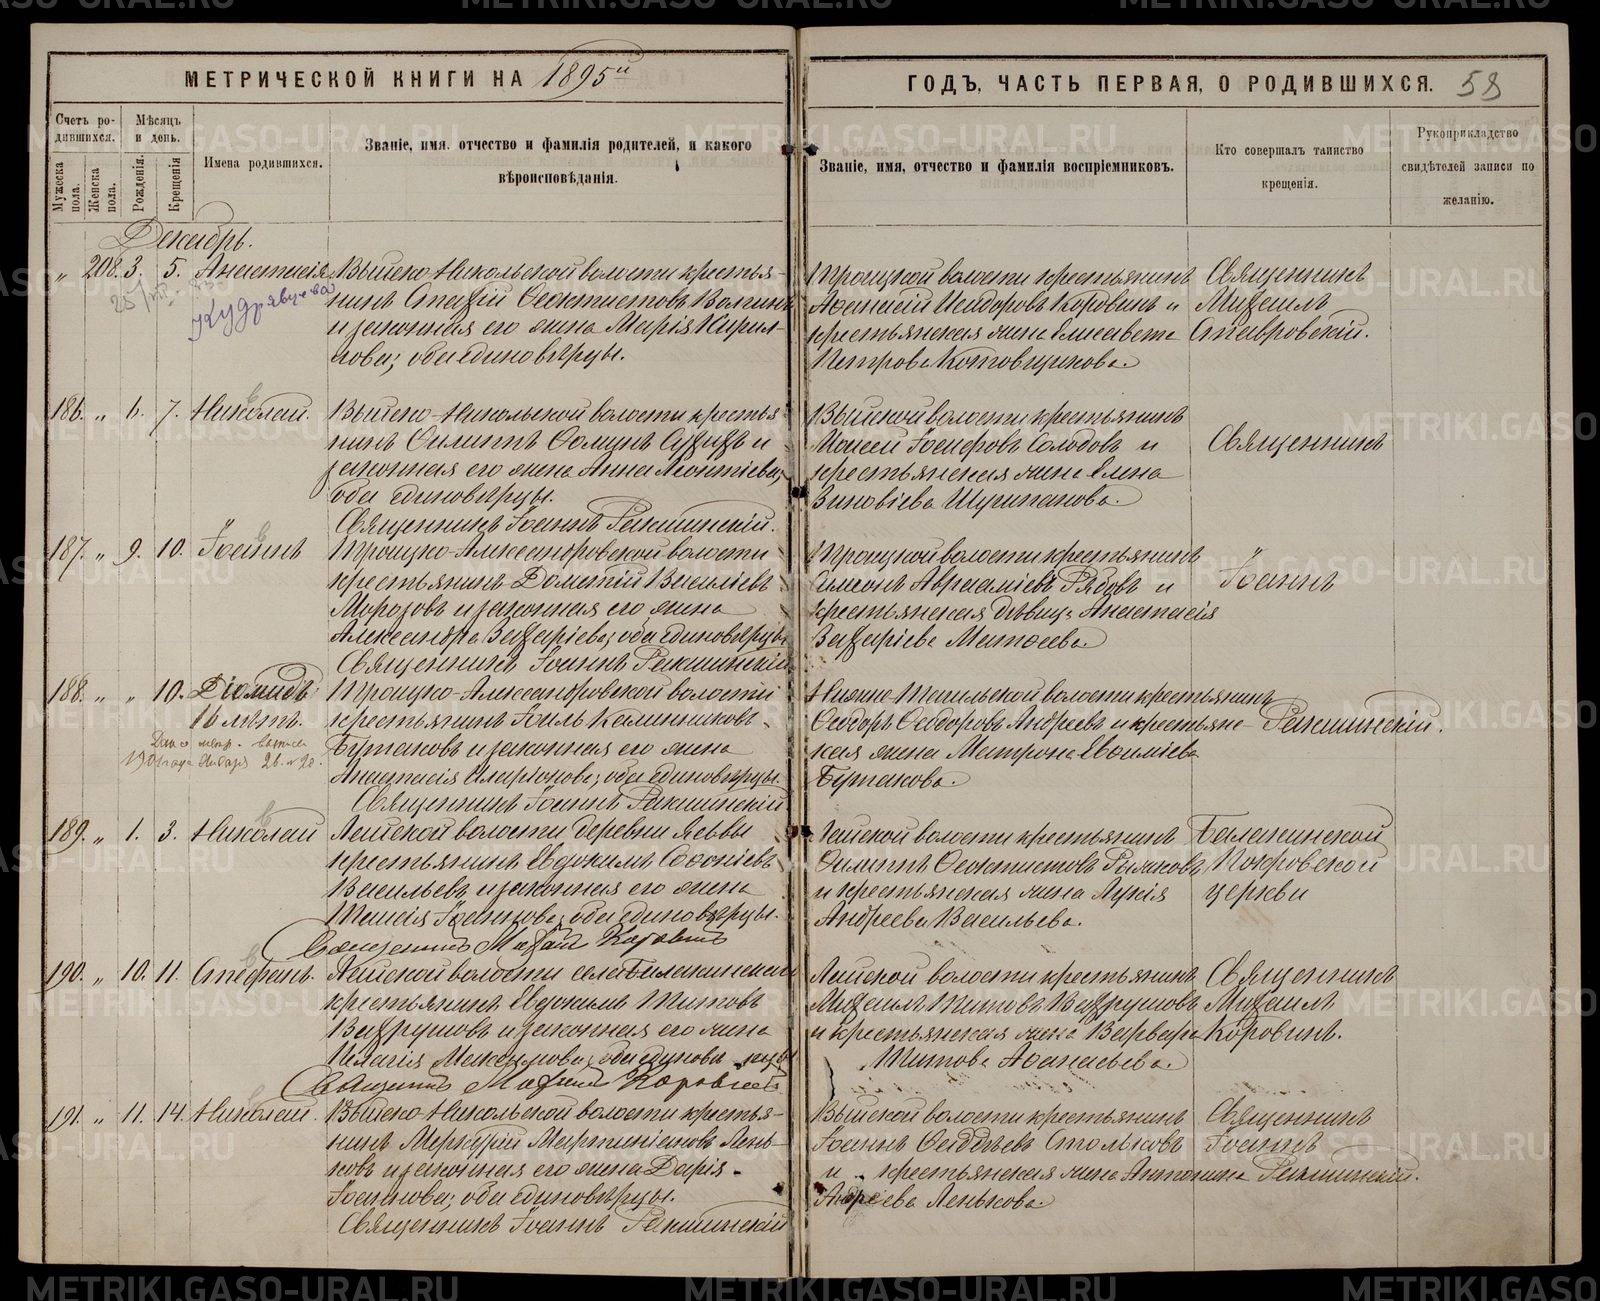 МЕТРИЧЕСКОЙ КНИГИ НА 1895й
ГОДЪ, ЧАСТЬ ПЕРВАЯ, О РОДИВШИХСЯ. 58
Счетъ ро-
дившихся.
Мѣсяцъ
и день.
Мужеска пола.
Женска пола.
Рожденія.
Крещенія
Имена родившихся.
Званіе, имя, отчество и фамилія родителей, и какого
вѣроисповѣданія.
Званіе, имя, отчество и фамилія воспріемниковъ.
Кто совершалъ таинство
крещенія.
Рукоприкладство
свидѣтелей записи по
желанію.
Декабрь.
„ 208. 3. 5. Анастасія
Кудрявцева
Выйско-Никольской волости крестья-
нинъ Ѳеоктистовъ
и законная его жена Марія Кирил-
лова; оба единовѣрцы.
Троицкой волости крестьянинъ
Аѳанасій Исидоровъ Коровинъ и
крестьянская жена Елисавета
Петрова Котовщикова.
Священникъ
Михаилъ
Ставровскій.
186. „ 6. 7. Николай.
Выйско-Никольской волости крестья-
нинъ Филиппъ и
законная его жена Анна Леонтіева;
оба единовѣрцы.
Священникъ Іоаннъ Ракшинскій.
Выйской волости крестьянинъ
Моисей Іосифовъ Солодовъ и
крестьянская жена Елена
Зиновіева
Священникъ
187. „ 9. 10. Іоаннъ
Троицко-Александровской волости
крестьянинъ Дометій Василіевъ
Морозовъ и законная его жена
Александра Захаріева; оба единовѣрцы
Священникъ Іоаннъ Ракшинскій
Троицкой волости крестьянинъ
Симеонъ Авраамiевъ Рябовъ и
крестьянская дѣвица Анастасія
Захаріева Матѳеева.
Іоаннъ
188. „ „ 10. Діомидъ
16 лѣтъ.
1901 года Января 26.
Троицко-Александровской волости
крестьянинъ Іоиль Калинниковъ
Бутаковъ и законная его жена
Анастасія Иларіонова; оба единовѣрцы.
Священникъ Іоаннъ Ракшинскій
Нижне-Тагильской волости крестьянинъ
Ѳеодоръ Ѳеодоровъ Андреевъ и крестьянс-
кая жена Матрона
Бутакова.
Ракшинскій.
189. „ 1. 3. Николай
Лайской волости деревни
крестьянинъ Евдокимъ Софоніевъ
Васильевъ и законная его жена
Таисія Іоаннова; оба единовѣрцы.
Священникъ Михаилъ Коровинъ
Лайской волости крестьянинъ
Филиппъ Ѳеоктистовъ
и крестьянская жена Лукія
Андреева Васильева.
Балакинской
Покровской
церкви
190. „ 10. 11. Стефанъ.
Лайской волости села Балакинскаго
крестьянинъ Евдокимъ Титовъ
Вахрушовъ и законная его жена
Пелагія Максимова; оба единовѣрцы
Священникъ Михаилъ Коровинъ
Лайской волости крестьянинъ
Михаилъ Титовъ Вахрушовъ
и крестьянская жена Варвара
Титова Аѳанасьева.
Священникъ
Михаилъ
Коровинъ.
191. „ 11. 14. Николай.
Выйско-Никольской волости крестья-
нинъ Меркурій Мартиніановъ Лень-
ковъ и законная его жена Дарія
Іоаннова; оба единовѣрцы.
Священникъ Іоаннъ Ракшинскій
Выйской волости крестьянинъ
Іоаннъ Ѳаддѣевъ Стольковъ
и крестьянская жена Антонина
Андреева Ленькова.
Священникъ
Іоаннъ
Ракшинскій.
METRIKI.GASO-URAL.RU